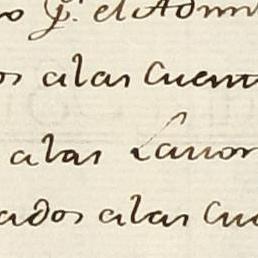 o p.r el Admin
os alas Cuent
alas Lavor
ados alas Cu